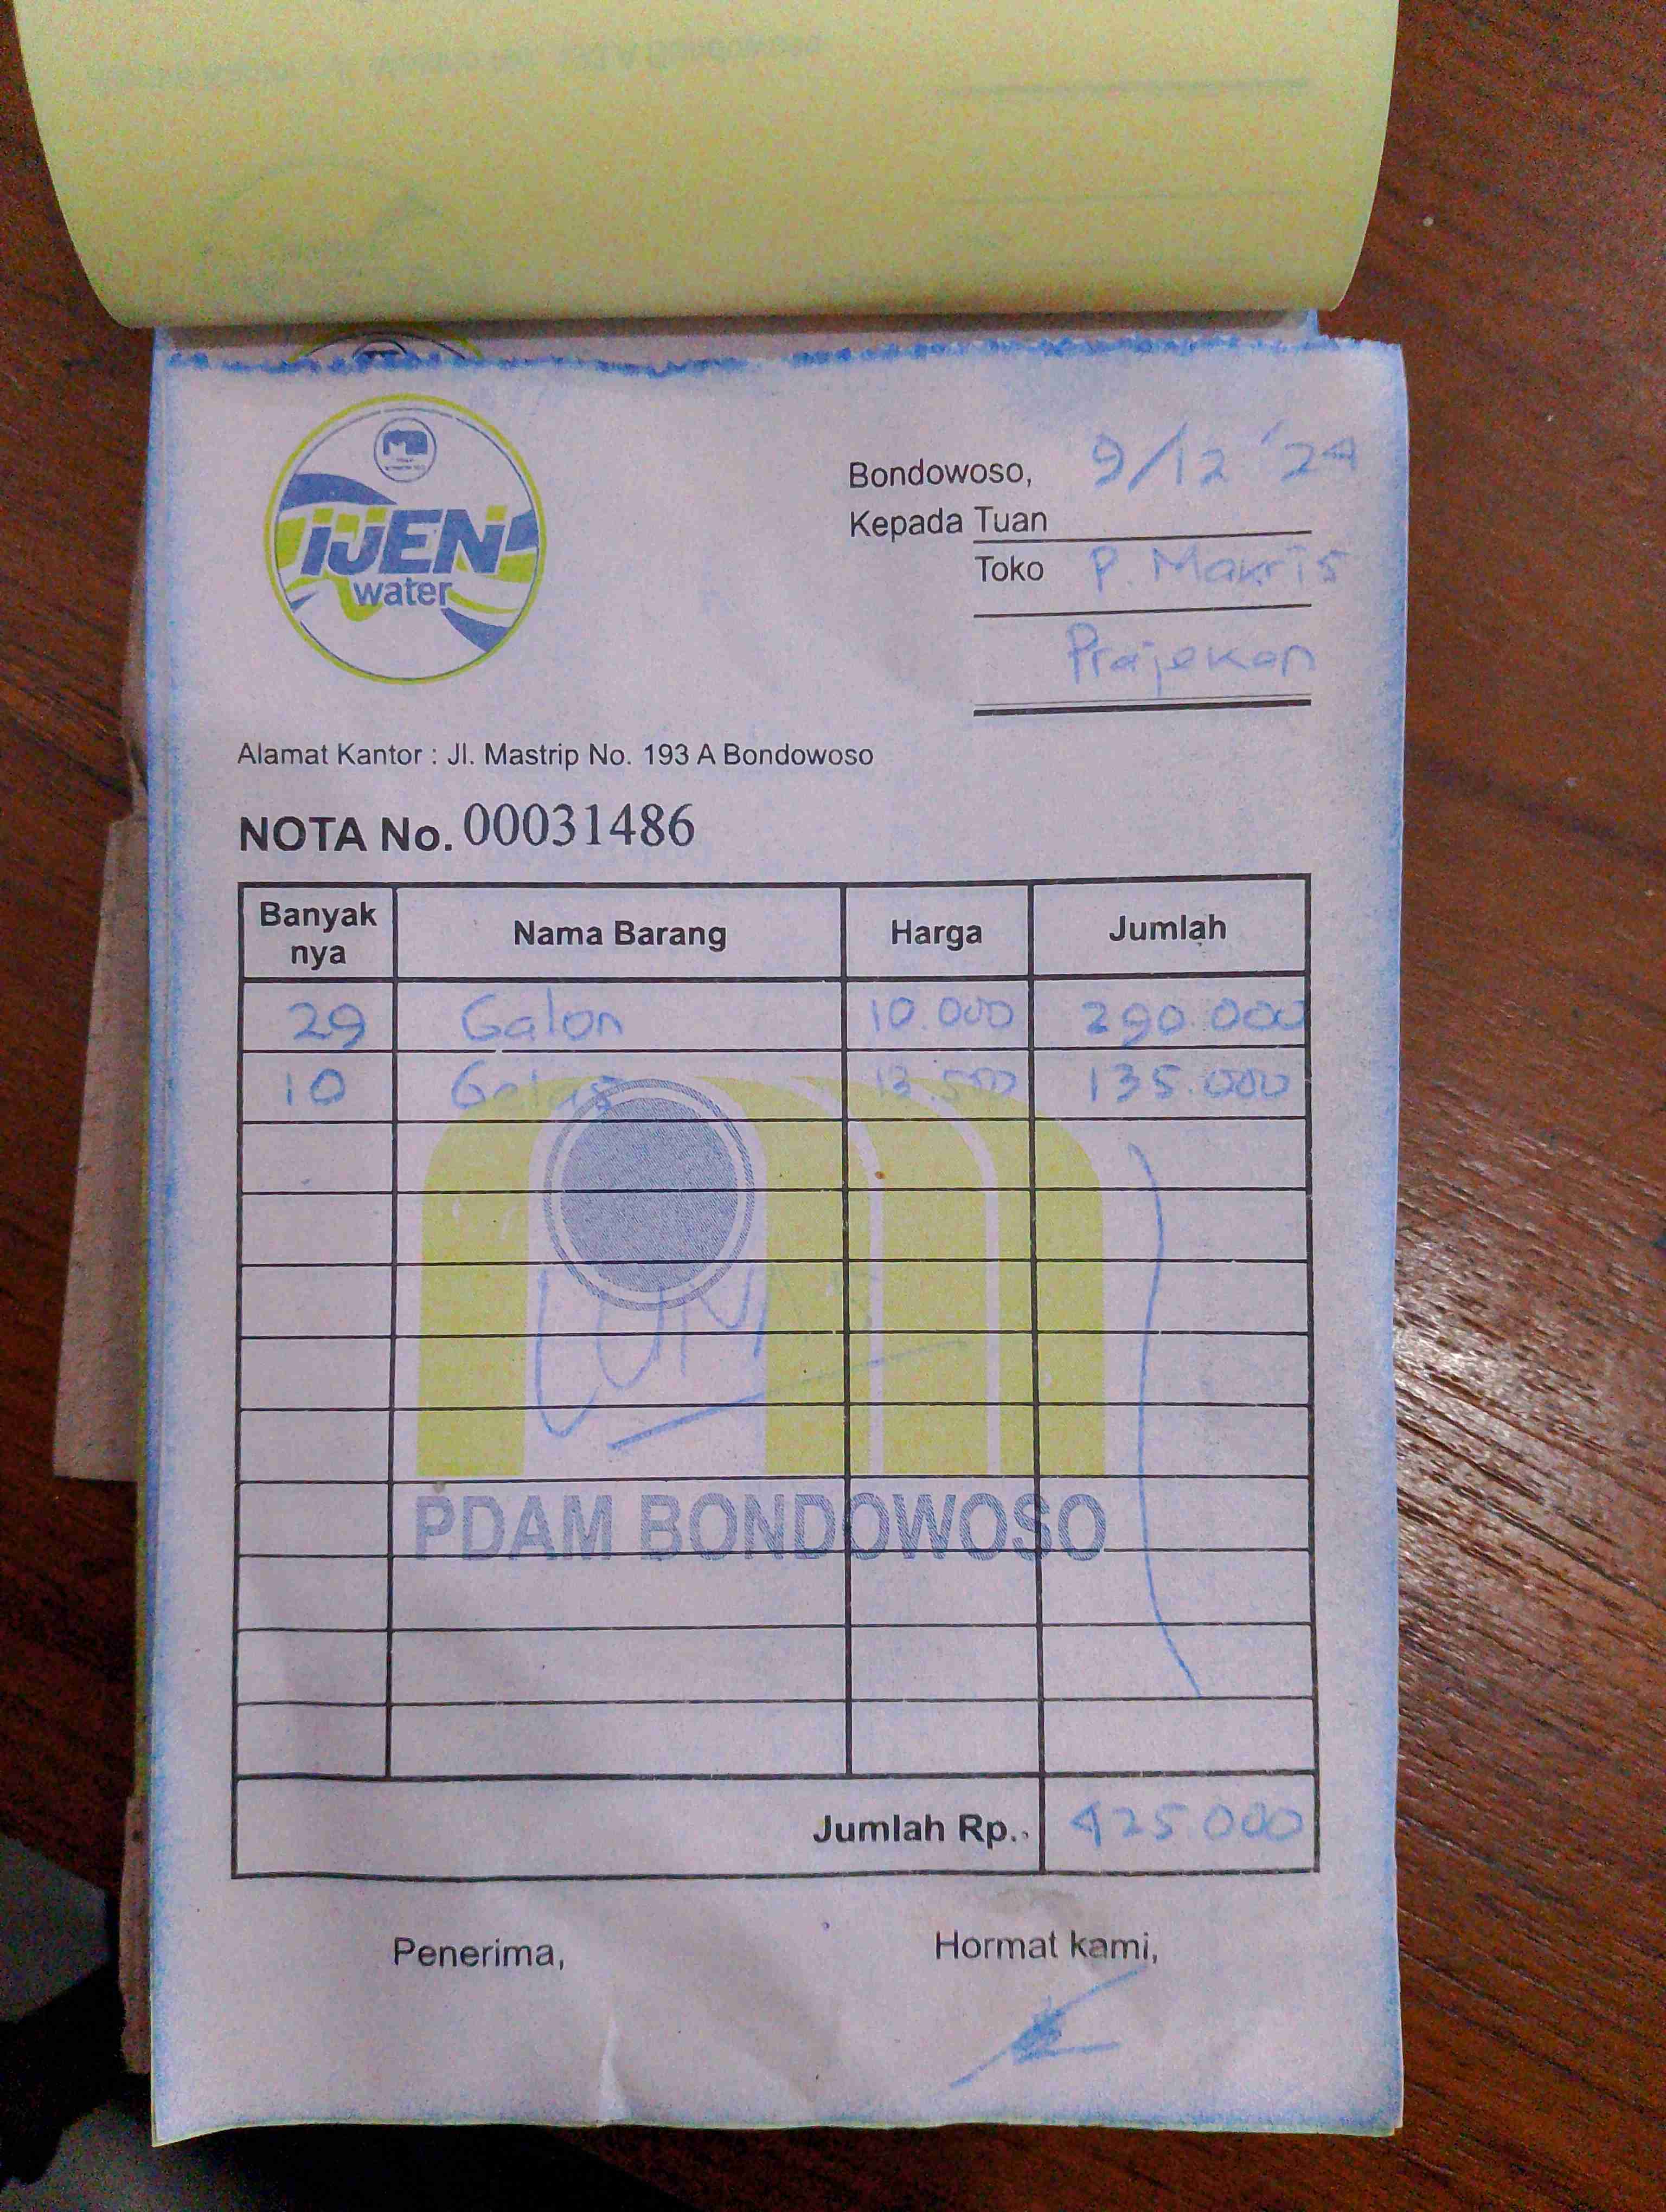 iJEN
water
Bondowoso, 9/12 '24
Kepada Tuan
Toko P. Makris
Prajekan
Alamat Kantor : Jl. Mastrip No. 193 A Bondowoso
NOTA No. 00031486
Banyak nya Nama Barang Harga Jumlah
29 Galon 10.000 290.000
10 Gelas 13.500 135.000
PDAM BONDOWOSO
Jumlah Rp. 425.000
Penerima, Hormat kami,